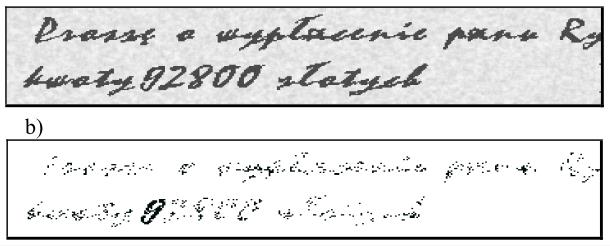 Proszę o wypłacenie panu Ry
kwoty 92800 złotych
b)